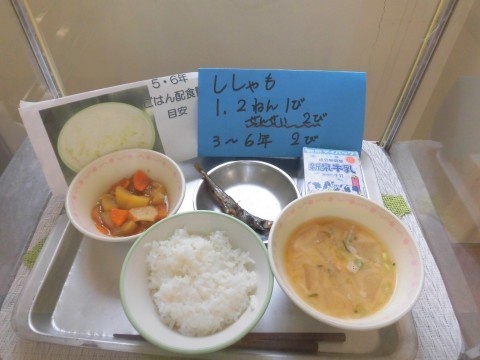 5・6年
ごはん配食
目安
ししゃも
1.2ねん1び
せんせい 2び
3～6年 2び
牛乳